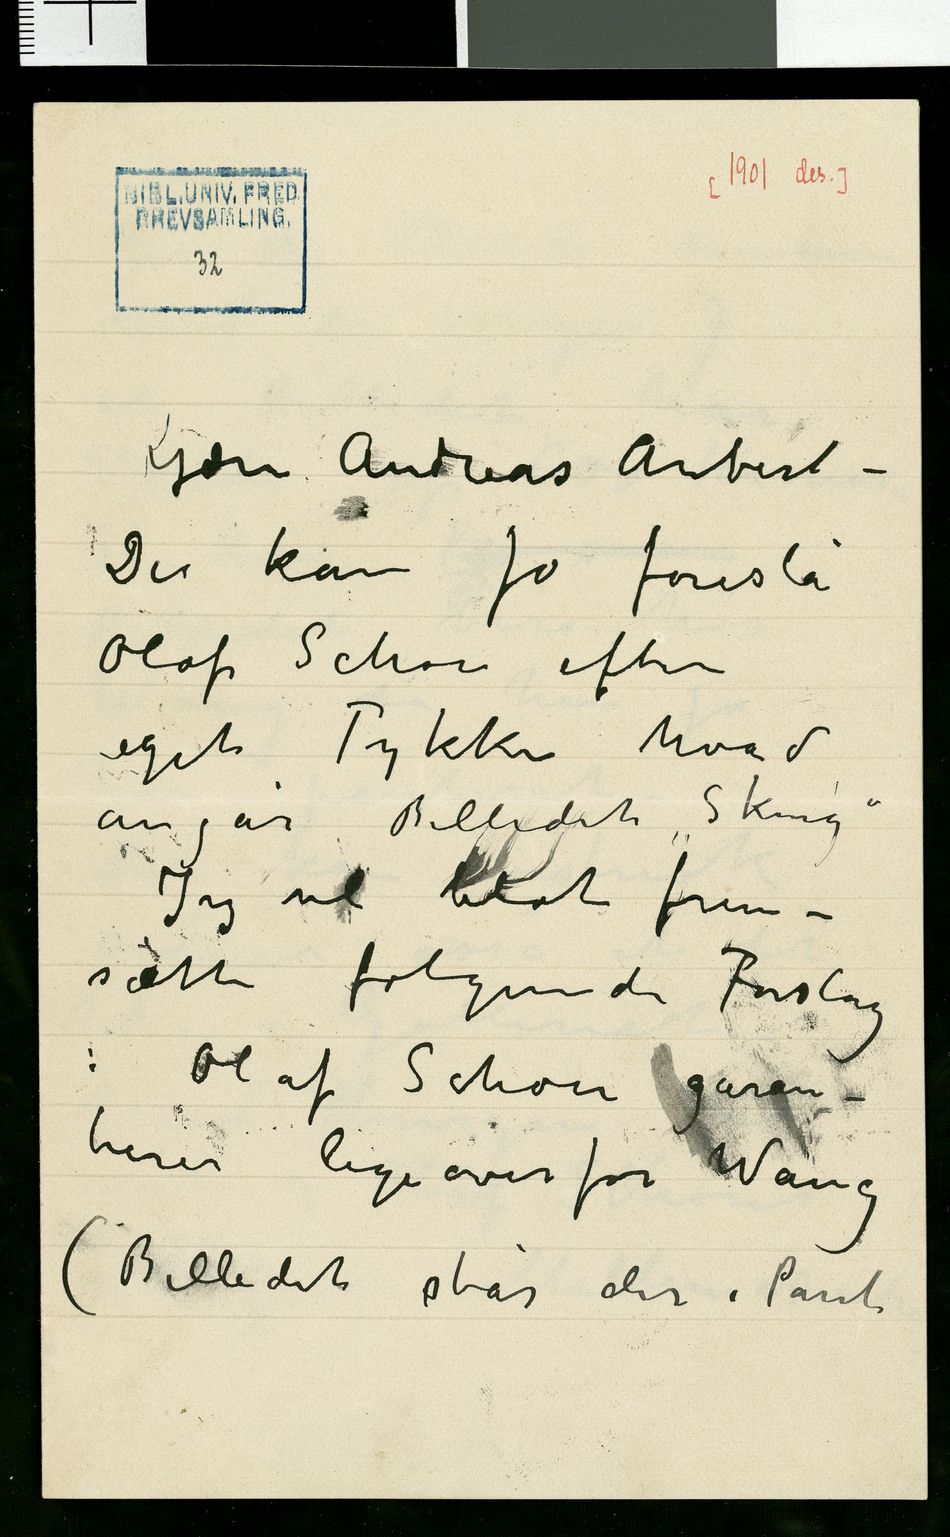 BIBL. UNIV. FRED.
BREVSAMLING.
32
[1901 des.]
Kjære Andreas Aubert –
De kan jo foreslå
Olaf Schou efter
eget Tykke hvad
angår Billedet „Skrig“
Jeg vil blot frem-
sætte følgende Forslag
: Olaf Schou garan-
terer ligeoverfor Wang
(Billedet står der i Pant